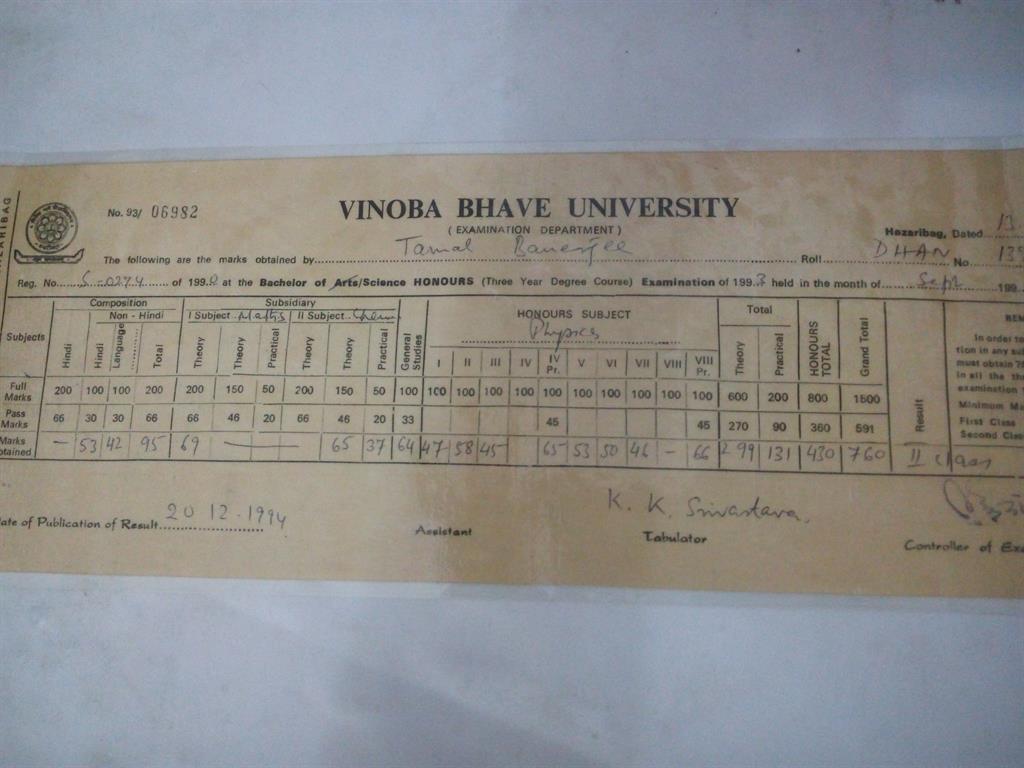 HAZARIBAG
No. 93/ 06982
VINOBA BHAVE UNIVERSITY
( EXAMINATION DEPARTMENT )
Hazaribag, Dated 13.
The following are the marks obtained by Tamal Banerjee Roll DHAN No
Reg. No. S-0274 of 1990 at the Bachelor of Arts/Science HONOURS (Three Year Degree Course) Examination of 1993 held in the month of Sept 199
Subjects Composition Subsidiary General Studies HONOURS SUBJECT Total HONOURS TOTAL Grand Total Result
Non - Hindi I Subject Maths II Subject Chem Physics
Hindi Hindi Language Total Theory Theory Practical Theory Theory Practical I II III IV IV Pr. V VI VII VIII VIII Pr. Theory Practical
Full Marks 200 100 100 200 200 150 50 200 150 50 100 100 100 100 100 100 100 100 100 100 100 600 200 800 1500
Pass Marks 66 30 30 66 66 46 20 66 46 20 33 45 45 270 90 360 591
Marks obtained — 53 42 95 69 — 65 37 64 47 58 45 65 53 50 46 — 66 299 131 430 760 II class
In order to
tion in any su
must obtain
in all the th
examination
Minimum Ma
First Class
Second Class
Date of Publication of Result 20 12.1994
Assistant
K. K. Srivastava.
Tabulator
Controller of Exa